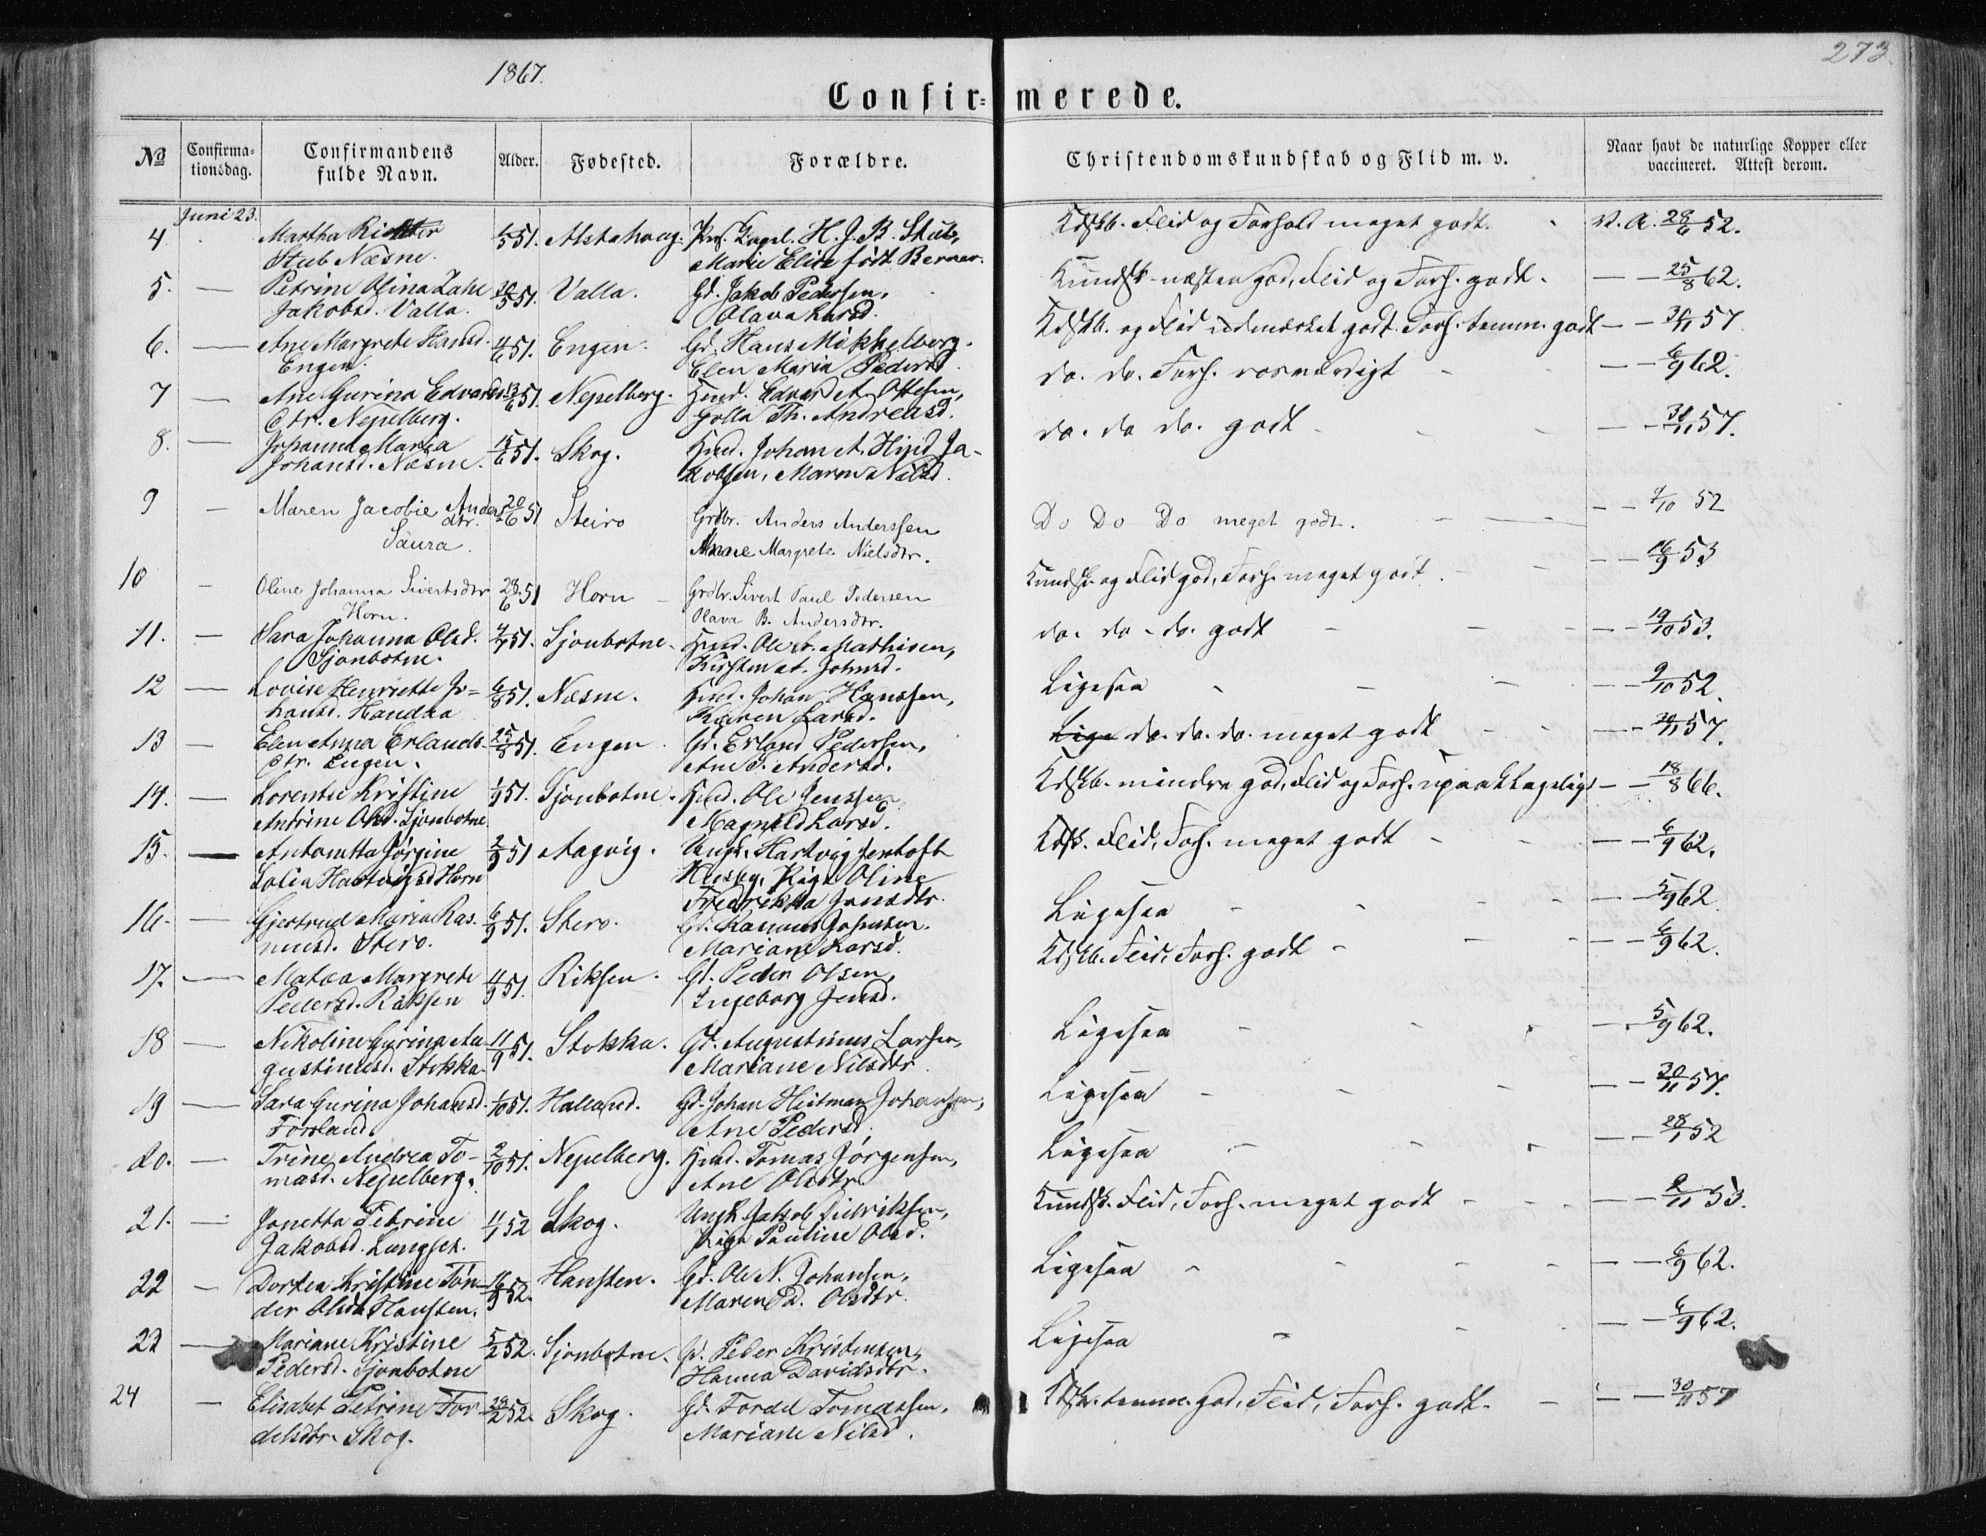 1867.
273.
Confir=merede.
No
Confirma-
tionsdag.
Confirmandens
fulde Navn.
Alder.
Fødested.
Forældre.
Christendomskundskab og Flid m. v.
Naar havt de naturlige Kopper eller
vaccineret. Attest derom.
Juni 23.
4 Martha Richter 5/5 51. Alstahoug. Pers. Kapel. H. J. B. Stub, Kdskb. Flid og Forhold meget godt. - V. A. 28/6 52.
Stub Næsne. Marie Elise født Berner.
5. — Petrine Olina Zahl 20/5 51. Valla. Gd. Jakob Pedersen, Kundsk. næsten god, Flid og Forh. godt. — — 25/8 62.
Jakobsd. Valla. Olava Larsd.
6. — Ane Margrete Hansd. 4/6 51. Engen. Gd. Hans Mikkelborg. Kdskb. og Flid udmærket godt. Forh. temm. godt — — 30/11 57
Engen. Elen Maria Pedersd.
7 — Ane Gurina Edvards 13/6 51. Nepelberg. Husd. Edvard A. Ottesen, do. do. Forh. rosværdigt - — — 6/9 62.
dtr. Nepelberg. Golla Th. Andreasd.
8. — Johanna Maria 15/6 51. Skog. Husd. Johan A. Hind Ja- do. do do. godt - — — 30/11 57.
Johansd. Næsne. kobsen, Maren Nilsd.
9 — Maren Jacobie Anders 20/6 51 Steiro Grdbr. Anders Anderssen Do Do Do meget godt. — — 9/10 52
dtr. Saura. Anne Margrete Nielsdtr.
10 - Oline Johanna Sivertsdtr 28/6 51 Horn Grdbr. Sivert Paul Pedersen Kundsk. og Flid god, Forh. meget godt. — — 16/9 53
Horn. Olava B. Andersdtr.
11. — Sara Johanna Olsd. 4/7 51. Sjonbotne. Husd. Ole A. Mathisen, do. do - do. godt - — — 19/10 53.
Sjonbotne. Kirsten A. Johnsd.
12 — Lovise Henriette Jo= 6/8 51. Næsne. Husd. Johan Hanssen, Ligesaa - — — 9/10 52.
hansd. Handka Karen Larsd.
13 — Elen Anna Erlands- 25/8 51. Engen. Gd. Erland Pedersen, Lige do. do. do. meget godt - — — 30/11 57.
dtr. Engen. Ane J. Andersd.
14. — Lorentse Kristine 1/9 51. Sjonbotne. Husd. Ole Jenssen Kdskb. mindre god, Flid og Forh. upaaklageligt — — 18/8 66.
Antrine Olsd. Sjonbotne. Magnild Larsd.
15. — Antonetta Jørgine 2/9 51 Aagvig. Ungk. Hartvig Jentoft Kdsk. Flid, Forh. meget godt - — — 6/9 62.
Lotia Hartvigsd Horn Husby, Pige Oline
Fredrikka Jensdtr.
16. — Gjertrud Maria Ras- 6/9 51. Stero. Gd. Rasmus Johnsen. Ligesaa - — — 5/9 62.
musd. Stero. Mariane Larsd.
17. — Matea Margrete 4/9 51. Riksen. Gd. Peder Olsen, Kdskb. Flid, Forh. godt - — — 6/9 62.
Pedersd. Riksen Ingeborg Jensd.
18 — Nikoline Gurina Au- 11/9 51. Stokka. Gd. Augustinus Larsen, Ligesaa - — 5/9 62.
gustinusd. Stokka. Mariane Nilsdtr.
19 — Sara Gurina Johansd. 1/10 51. Halland. Gd. Johan Heitman Johansen, Ligesaa - — — 30/11 57.
Forsland. Ane Pedersd.
20. — Trine Andrea To- 2/10 51. Nepelberg. Husd. Tomas Jørgensen, Ligesaa - — — 28/1 52
masd. Nepelberg. Ane Olsdtr.
21. — Janetta Petrine 11/1 52 Skog. Ungk. Jakob Didriksen, Kundsk. Flid, Forh. meget godt - — — 2/11 53.
Jakobsd. Langset. Pige Pauline Olsd.
22 — Dortea Kristine Tøn- 16/9 52. Hansten. Gd. Ole N. Johansen, Ligesaa - — — 6/9 62.
der Olsd. Hansten. Maren P. Olsdtr.
23 — Mariane Kristine 5/2 52. Sjonbotne. Gd. Peder Kristensen, Ligesaa - — — 6/9 62.
Pedersd. Sjonbotne Hanna Davidsdtr.
24 — Elisabet Petrine For- 29/2 52. Skog. Gd. Fordel Tomassen, Kdsk. temm. god, Flid, Forh. godt. — — 30/11 57
delsdtr. Skog. Mariane Nilsd.